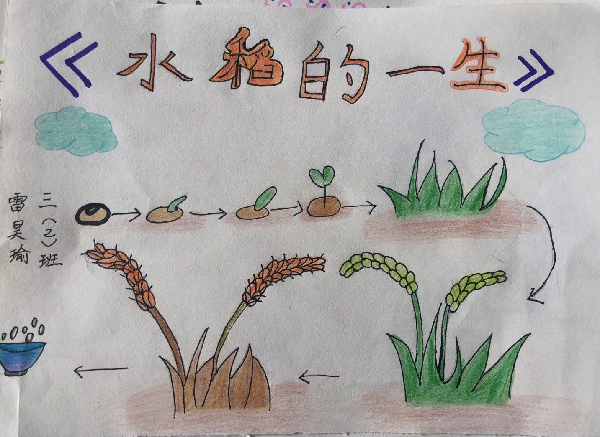 《水稻的一生》
三（2）班
雷昊瑜